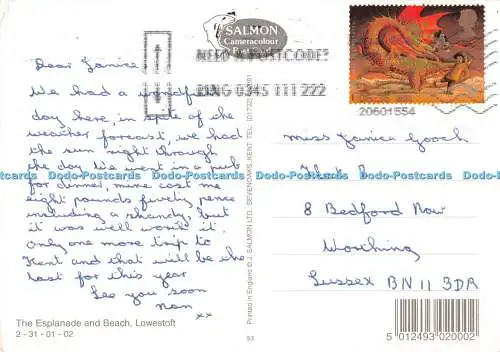 SALMON
Cameracolour
Post Card
NEED A POSTCODE?
RING 0345 111 222
20601554
Dear Janice
We had a wonderful
day here, in spite of the
weather forecast, we had
the sun right through
the day. We went in a pub
for dinner, mine cost me
eight pounds fivety pence
including a shandy, but
it was well worth it.
only one more trip to
Kent and that will be the
last for this year
See you soon
Nan
xx
The Esplanade and Beach, Lowestoft
2 - 31 - 01 - 02
Printed in England © J. SALMON LTD., SEVENOAKS, KENT TEL.
93
Miss Janice Gooch
8 Bedford Row
Worthing
Sussex BN11 3DR
5 012493 020002
Dodo-Postcards Dodo-Postcards Dodo-Postcards Dodo-Postcards Dodo-Postcards